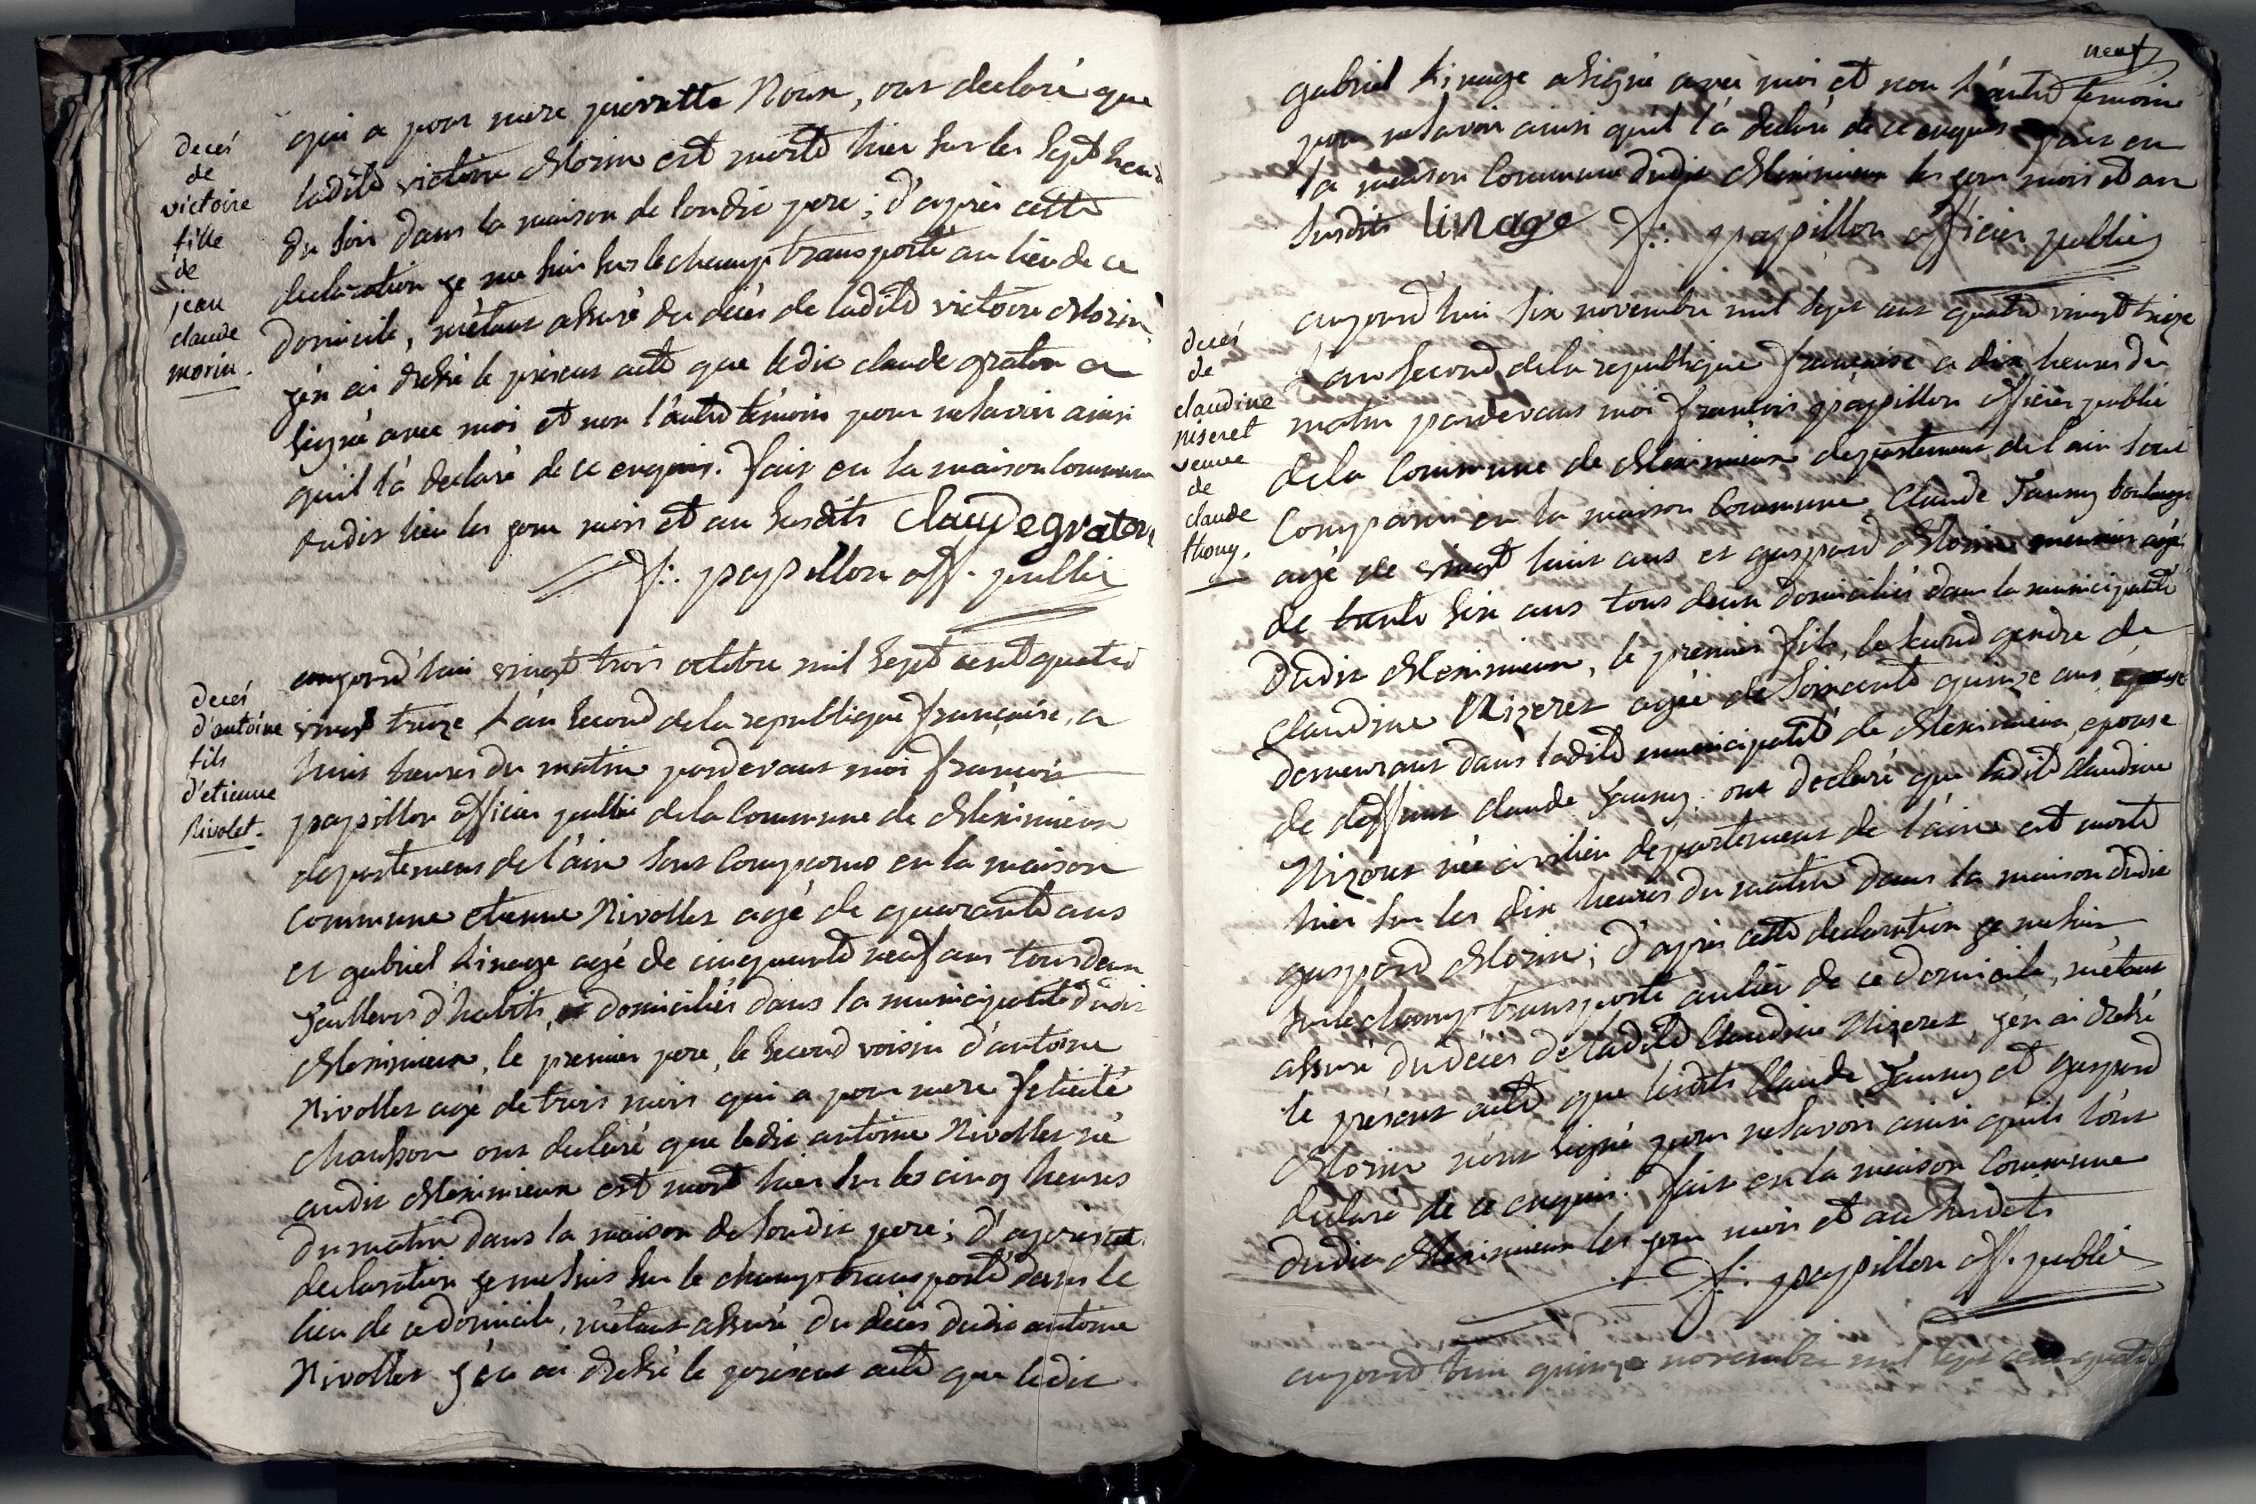 decés
de
victoire
fille
de
jean
claude
morin.
qui a pour mere pierrette Noux, ont declaré que
ladite victoire Morin est morte hier sur les sept heures
du soir dans la maison de sondit pere ; d'après cette
declaration je me suis sur le champ transporté au lieu de ce
domicile, m'étant assuré du décès de ladite victoire Morin
j'en ai dressé le présent acte que ledit claude graton a
signé avec moi et non l'autre témoin pour ne savoir ainsi
qu'il l'a declaré de ce enquis. fait en la maison commune
dudit lieu les jour mois et an susdits Claude graton
f: papillon off. public
decés
d'antoine
fils
d'etienne
Rivolet.
aujourd'hui vingt trois octobre mil sept cent quatre
vingt treize l'an second de la republique française, a
huit heures du matin pardevant moi françois
papillon officier public de la Commune de Meximieux
departement de l'ain sont comparus en la maison
commune etienne Nivollet agé de quarante ans
et gabriel Linage agé de cinquante neuf ans tous deux
tailleurs d'habits, domiciliés dans la municipalité dudit
Meximieux, le premier pere, le second voisin d'antoine
Nivollet agé de trois mois qui a pour mere felicité
chausson ont declaré que ledit antoine Nivollet né
audit Meximieux est mort hier sur les cinq heures
du matin dans la maison de sondit pere ; d'après cette
declaration je me suis sur le champ transporté dans le
lieu de ce domicile, m'étant assuré du décès dudit antoine
Nivollet j'en ai dressé le présent acte que ledit
neuf
gabriel Linage a signé avec moi et non l'autre temoin
pour ne savoir ainsi qu'il l'a declaré de ce enquis fait en
la maison Commune dudit Meximieux les jour mois et an
susdits linage f: papillon officier public
decés
de
claudine
niseret
veuve
de
claude
thony.
aujourd'hui six novembre mil sept cent quatre vingt treize
l'an second de la republique française a dix heures du
matin pardevant moi françois papillon officier public
de la Commune de Meximieux departement de l'ain sont
comparus en la maison Commune Claude Jauny boulanger
agé de vingt huit ans et gaspard Morin meunier agé
de trente six ans tous deux domiciliés dans la municipalité
dudit Meximieux, le premier fils, le second gendre de
claudine Nizeret agée de soixante quinze ans
demeurant dans ladite municipalité de Meximieux, epouse
de deffunt claude Jauny, ont declaré que ladite claudine
Nizeret née a vilieu departement de l'ain est morte
hier sur les dix heures du matin dans la maison dudit
gaspard Morin ; d'après cette declaration je me suis
sur le champ transporté au lieu de ce domicile, m'étant
assuré du décès de ladite Claudine Nizeret, j'en ai dressé
le présent acte que lesdits Claude Jauny et gaspard
Morin n'ont signé pour ne savoir ainsi qu'ils l'ont
declaré de ce enquis. fait en la maison Commune
dudit Meximieux les jour mois et an susdits
f: papillon off. public
aujourd'hui quinze novembre mil sept cent quatre